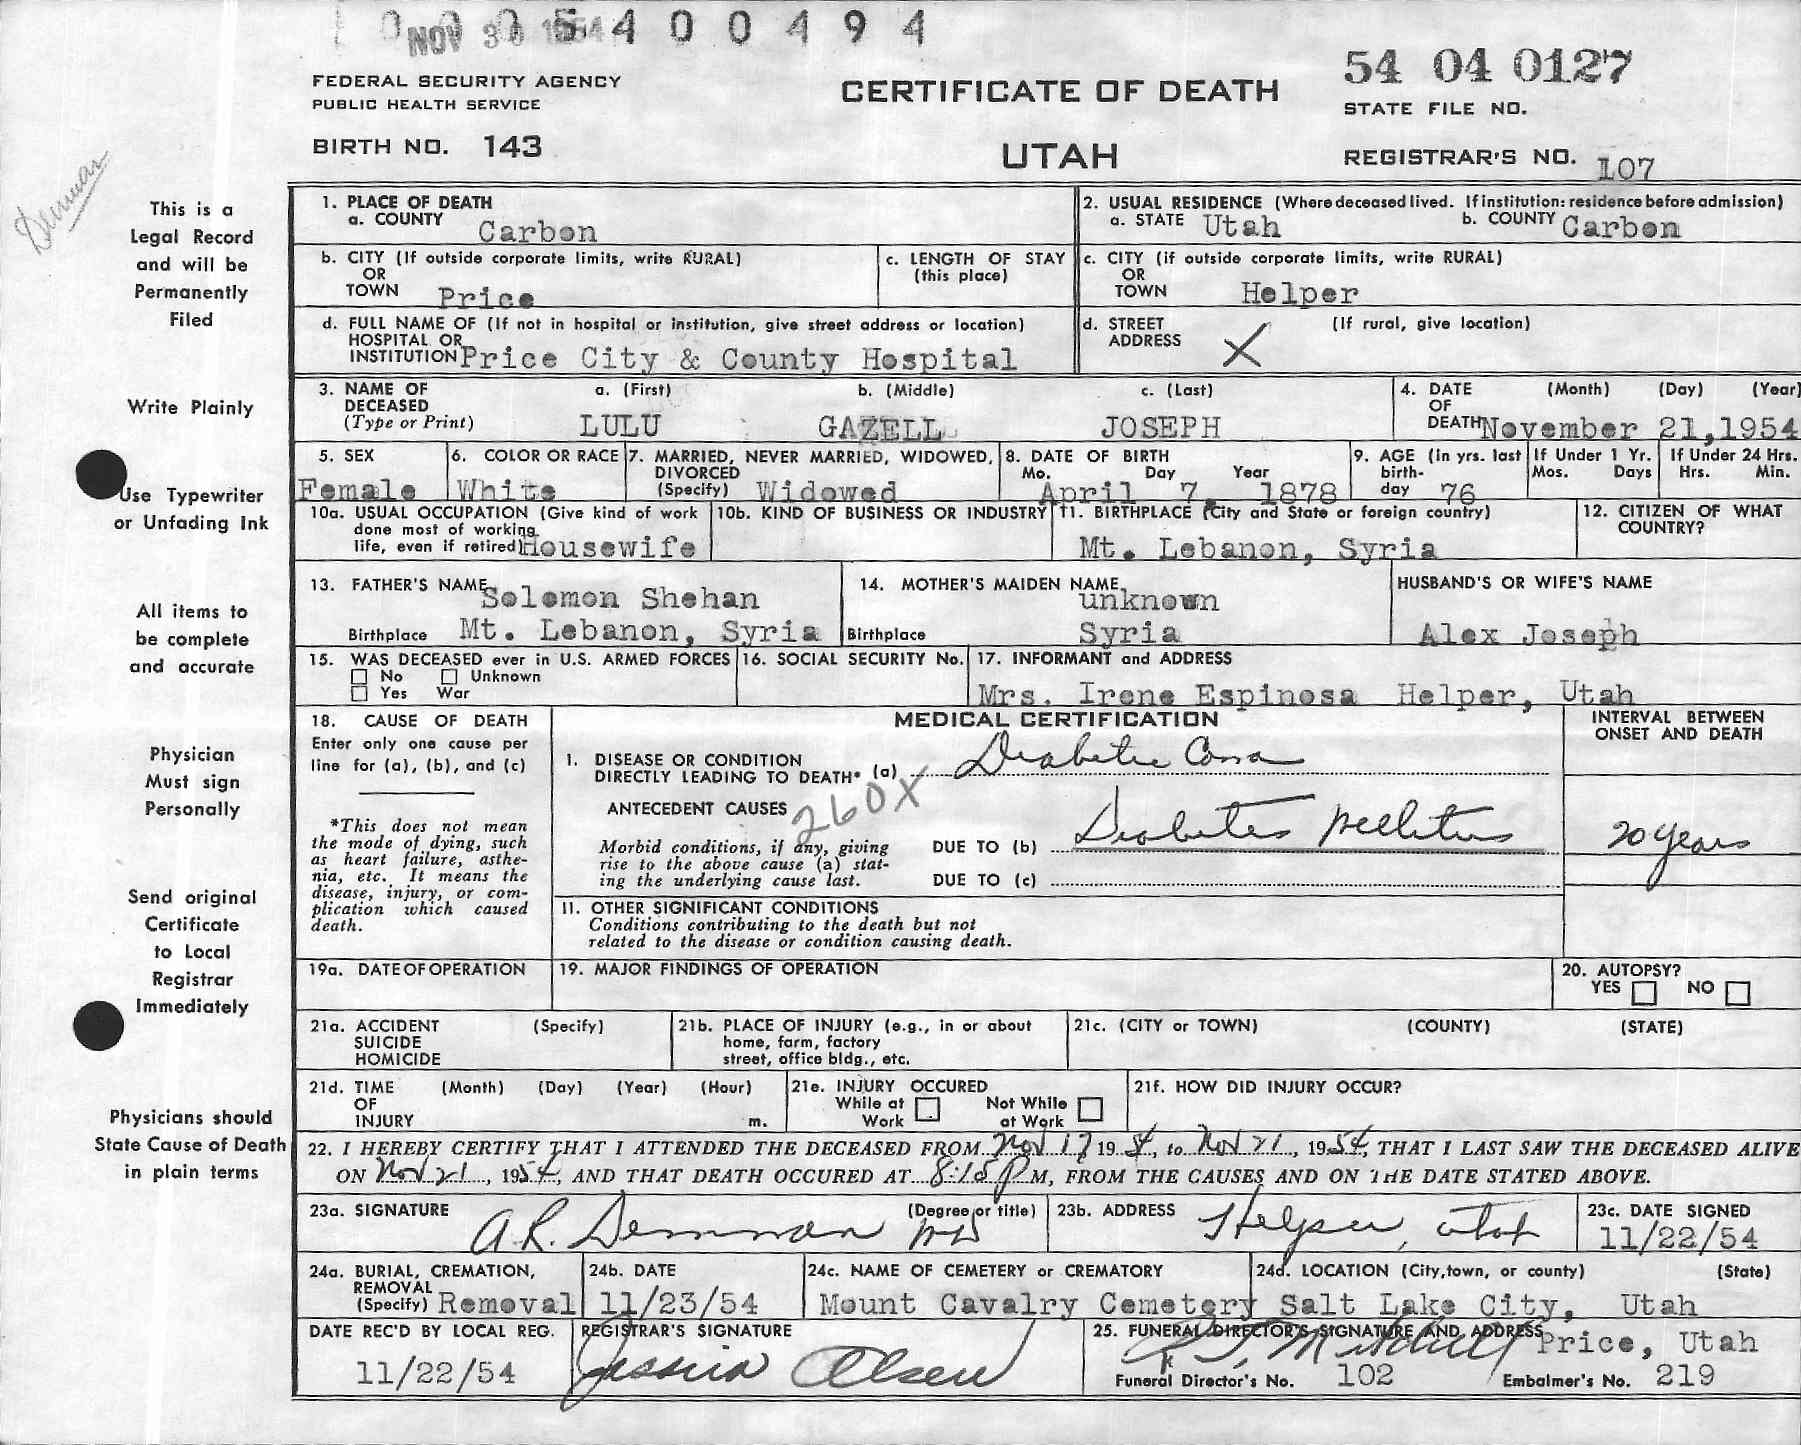 0005400494
NOV 30 1954
54 04 0127
FEDERAL SECURITY AGENCY
PUBLIC HEALTH SERVICE
CERTIFICATE OF DEATH
STATE FILE NO.
BIRTH NO. 143
UTAH
REGISTRAR'S NO. 107
Denman
This is a
Legal Record
and will be
Permanently
Filed
Write Plainly
Use Typewriter
or Unfading Ink
All items to
be complete
and accurate
Physician
Must sign
Personally
Send original
Certificate
to Local
Registrar
Immediately
Physicians should
State Cause of Death
in plain terms
1. PLACE OF DEATH
a. COUNTY Carbon
2. USUAL RESIDENCE (Where deceased lived. If institution: residence before admission)
a. STATE Utah b. COUNTY Carbon
b. CITY (If outside corporate limits, write RURAL)
OR
TOWN Price
c. LENGTH OF STAY
(this place)
c. CITY (if outside corporate limits, write RURAL)
OR
TOWN Helper
d. FULL NAME OF (If not in hospital or institution, give street address or location)
HOSPITAL OR
INSTITUTION Price City & County Hospital
d. STREET (If rural, give location)
ADDRESS X
3. NAME OF a. (First) b. (Middle) c. (Last)
DECEASED
(Type or Print) LULU GAZELL JOSEPH
4. DATE (Month) (Day) (Year)
OF
DEATH November 21, 1954
5. SEX
Female
6. COLOR OR RACE
White
7. MARRIED, NEVER MARRIED, WIDOWED,
DIVORCED
(Specify) Widowed
8. DATE OF BIRTH
Mo. Day Year
April 7, 1878
9. AGE (In yrs. last
birth-
day 76
If Under 1 Yr.
Mos. Days
If Under 24 Hrs.
Hrs. Min.
10a. USUAL OCCUPATION (Give kind of work
done most of working
life, even if retired) Housewife
10b. KIND OF BUSINESS OR INDUSTRY
11. BIRTHPLACE (City and State or foreign country)
Mt. Lebanon, Syria
12. CITIZEN OF WHAT
COUNTRY?
13. FATHER'S NAME Solomon Shehan
Birthplace Mt. Lebanon, Syria
14. MOTHER'S MAIDEN NAME unknown
Birthplace Syria
HUSBAND'S OR WIFE'S NAME
Alex Joseph
15. WAS DECEASED ever in U.S. ARMED FORCES
No Unknown
Yes War
16. SOCIAL SECURITY No.
17. INFORMANT and ADDRESS
Mrs. Irene Espinosa Helper, Utah
18. CAUSE OF DEATH
Enter only one cause per
line for (a), (b), and (c)
*This does not mean
the mode of dying, such
as heart failure, asthe-
nia, etc. It means the
disease, injury, or com-
plication which caused
death.
MEDICAL CERTIFICATION
INTERVAL BETWEEN
ONSET AND DEATH
I. DISEASE OR CONDITION
DIRECTLY LEADING TO DEATH* (a) Diabetic Coma
ANTECEDENT CAUSES 260X
Morbid conditions, if any, giving
rise to the above cause (a) stat-
ing the underlying cause last.
DUE TO (b) Diabetes Mellitus 20 years
DUE TO (c)
II. OTHER SIGNIFICANT CONDITIONS
Conditions contributing to the death but not
related to the disease or condition causing death.
19a. DATE OF OPERATION
19. MAJOR FINDINGS OF OPERATION
20. AUTOPSY?
YES NO
21a. ACCIDENT (Specify)
SUICIDE
HOMICIDE
21b. PLACE OF INJURY (e.g., in or about
home, farm, factory
street, office bldg., etc.
21c. (CITY or TOWN) (COUNTY) (STATE)
21d. TIME (Month) (Day) (Year) (Hour)
OF
INJURY m.
21e. INJURY OCCURED
While at Not While
Work at Work
21f. HOW DID INJURY OCCUR?
22. I HEREBY CERTIFY THAT I ATTENDED THE DECEASED FROM Nov 17 1954, to Nov 21, 1954, THAT I LAST SAW THE DECEASED ALIVE
ON Nov 21, 1954, AND THAT DEATH OCCURED AT 8:15 P M, FROM THE CAUSES AND ON THE DATE STATED ABOVE.
23a. SIGNATURE (Degree or title)
A.R. Demman MD
23b. ADDRESS Helper, Utah
23c. DATE SIGNED
11/22/54
24a. BURIAL, CREMATION,
REMOVAL
(Specify) Removal
24b. DATE
11/23/54
24c. NAME OF CEMETERY or CREMATORY
Mount Cavalry Cemetery
24d. LOCATION (City, town, or county) (State)
Salt Lake City, Utah
DATE REC'D BY LOCAL REG.
11/22/54
REGISTRAR'S SIGNATURE
Jessica Olsen
25. FUNERAL DIRECTOR'S SIGNATURE AND ADDRESS
Mitchell Price, Utah
Funeral Director's No. 102 Embalmer's No. 219